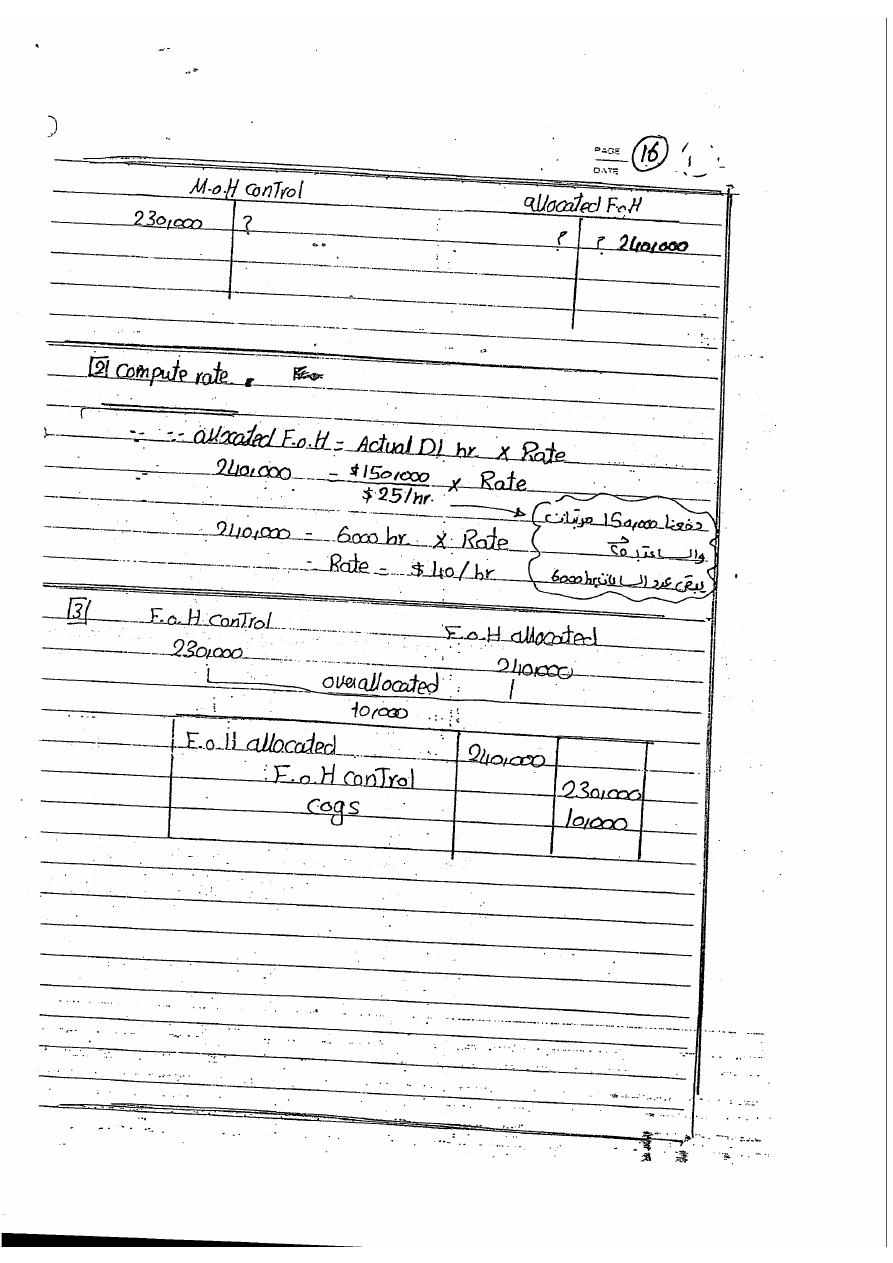 PAGE 16
DATE
M.o.H control
allocated F.o.H
230,000 ?
? ? 240,000
[2] Compute rate.
allocated F.o.H = Actual DL hr x Rate
240,000 = $150,000 / $25/hr. x Rate
240,000 = 6000 hr x Rate
= Rate = $40/hr
دفعنا 150,000 مرتبات
يبقى عدد الساعات 6000 hr
[3] F.o.H control
F.o.H allocated
230,000
240,000
overallocated
10,000
F.o.H allocated 240,000
F.o.H control 230,000
cogs 10,000